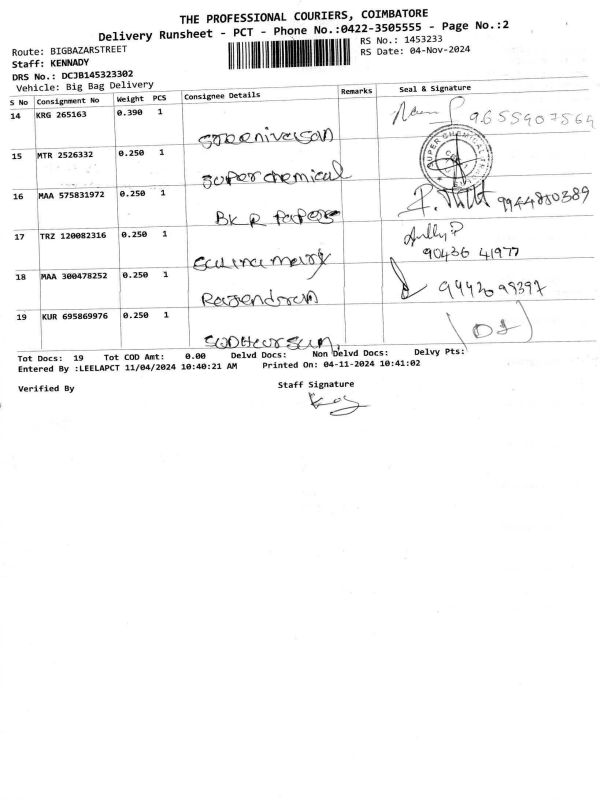 THE PROFESSIONAL COURIERS, COIMBATORE
Delivery Runsheet - PCT - Phone No.:0422-3505555 - Page No.:2
Route: BIGBAZARSTREET
RS No.: 1453233
Staff: KENNADY
RS Date: 04-Nov-2024
DRS No.: DCJB145323302
Vehicle: Big Bag Delivery
S No Consignment No Weight PCS Consignee Details Remarks Seal & Signature
14 KRG 265163 0.390 1 Sreenivasan 9655907564
15 MTR 2526332 0.250 1 Super chemical SUPER CHEMICAL
16 MAA 575831972 0.250 1 BK R Papers 9944880389
17 TRZ 120082316 0.250 1 90436 41977
18 MAA 300478252 0.250 1 Rajendran
19 KUR 695869976 0.250 1
Tot Docs: 19 Tot COD Amt: 0.00 Delvd Docs: Non Delvd Docs: Delvy Pts:
Entered By :LEELAPCT 11/04/2024 10:40:21 AM Printed On: 04-11-2024 10:41:02
Verified By
Staff Signature